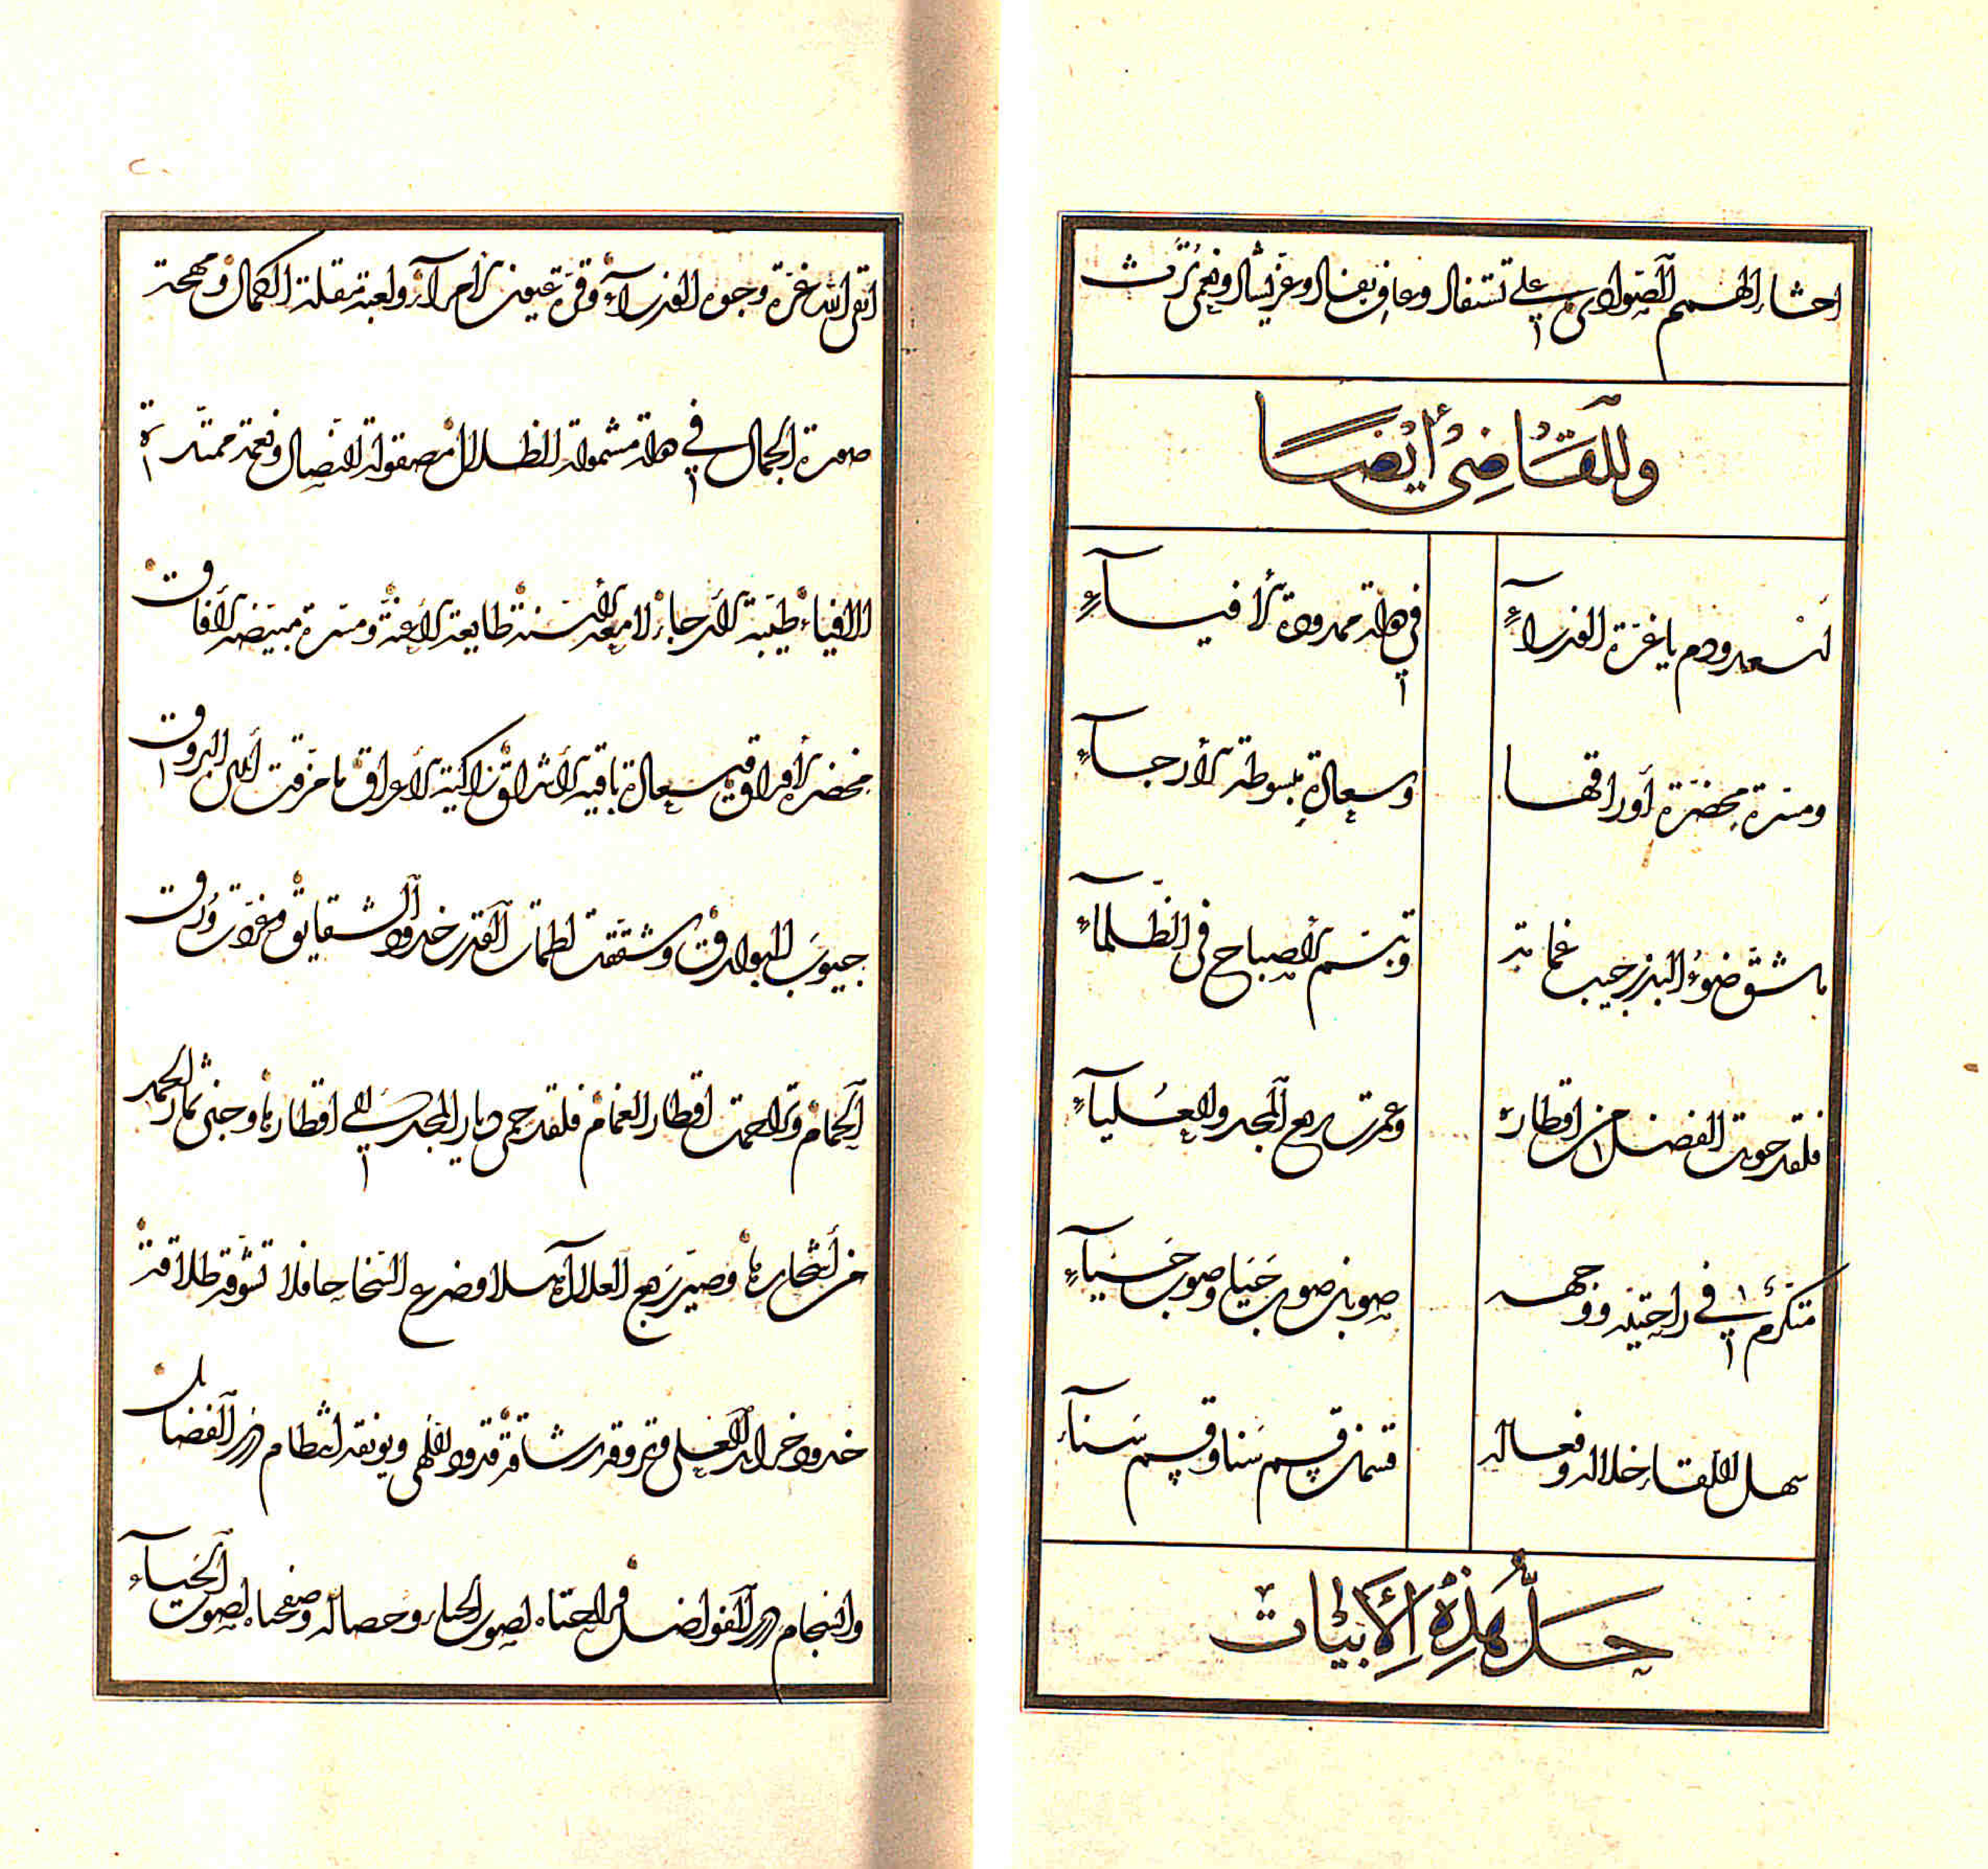 احشاء الهمم الصوادى على تستفال وعاف يفال وعز يشال ونعمى ترث
وللقاضي أيضا
اسعد ودم يا غرة الغرباء في هالة ممدودة الأفياء
ومسرة مخضرة أوراقها وسعادة مبسوطة الأرجاء
ما شق ضوء البدر جيب غمامة وتبسم الإصباح في الظلماء
فلقد حويت الفضل من اقطاره وعمرت ربع المجد والعلياء
متكرم في راحتيه ووجهه صوبان صوب حيا وصوب حياء
سهل اللقاء خلاله وفعاله قسمان قسم سنا وقسم سناء
حل هذه الأبيات
ابقى الله غرة وجوه وقرة عيون ولعبة مقلة الكمال ومهجة
صورة الجمال في هالة مشمولة الظلال مصقولة النصال ونعمة ممتدة
الافياء طيبة الأرجاء لامعة الأسنة طايعة الأعنة ومسرة مبيضة الأفاق
مخضرة الأوراق وسعادة باقية الأشراق زاكية الأعراق ما خرقت أيدي البروق
جيوب البوارق وشققت لطمات القطر خدود الشقايق وغردت ورق
الحمام وتزاحمت اقطار الغمام فلقد حمى ديار المجد في اقطارها وجنى ثمار الحمد
من أشجارها وصير ربع العلا آهلا وضرع السخا حافلا تشوق طلاقته
خدود خرايد العلى وتروق رشاقته قدود النهى ويونقه انتظام درر الفضايل
وانسجام درر الفواضل فراحتاه لصوب الحيا وخصاله وصفحتاه لصوب الحياء